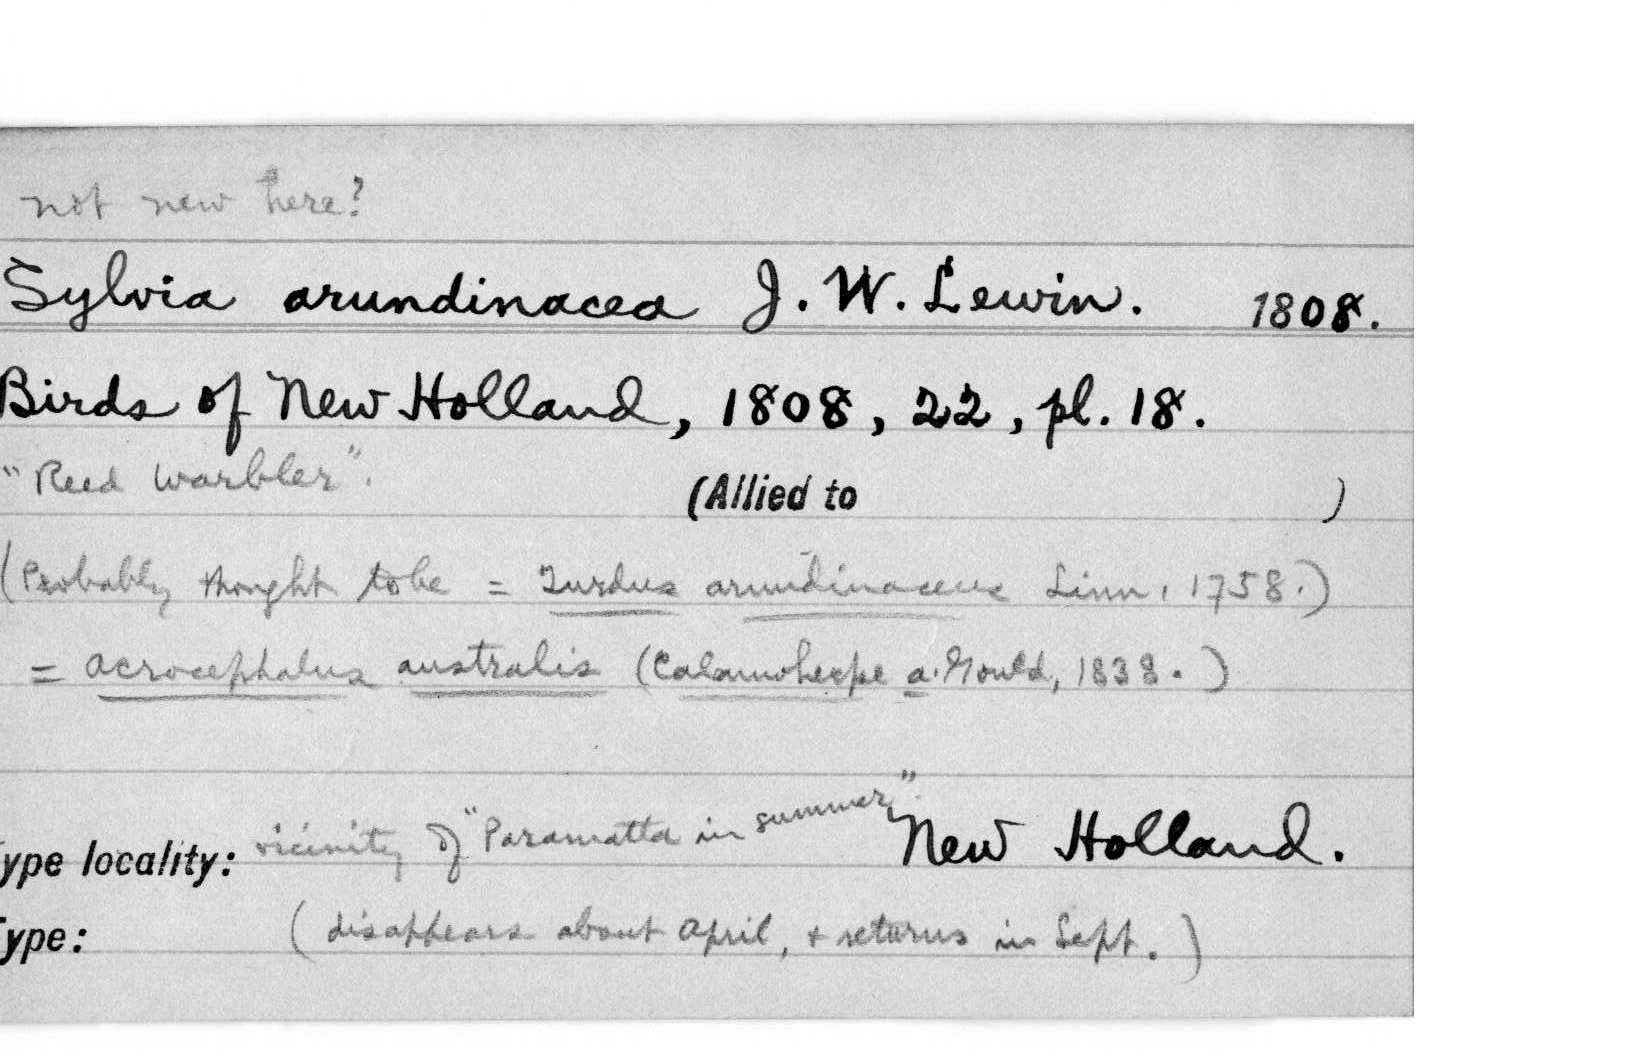 not new here?
Sylvia arundinacea J. W. Lewin. 1808.
Birds of New Holland, 1808, 22, pl. 18.
"Reed Warbler". (Allied to )
(Probably thought to be = Turdus arundinaceus Linn, 1758.)
= Acrocephalus australis (Calamoherpe a. Gould, 1838.)
ype locality: vicinity of "Paramatta in summer". New Holland.
ype: (disappears about April, + returns in Sept.)